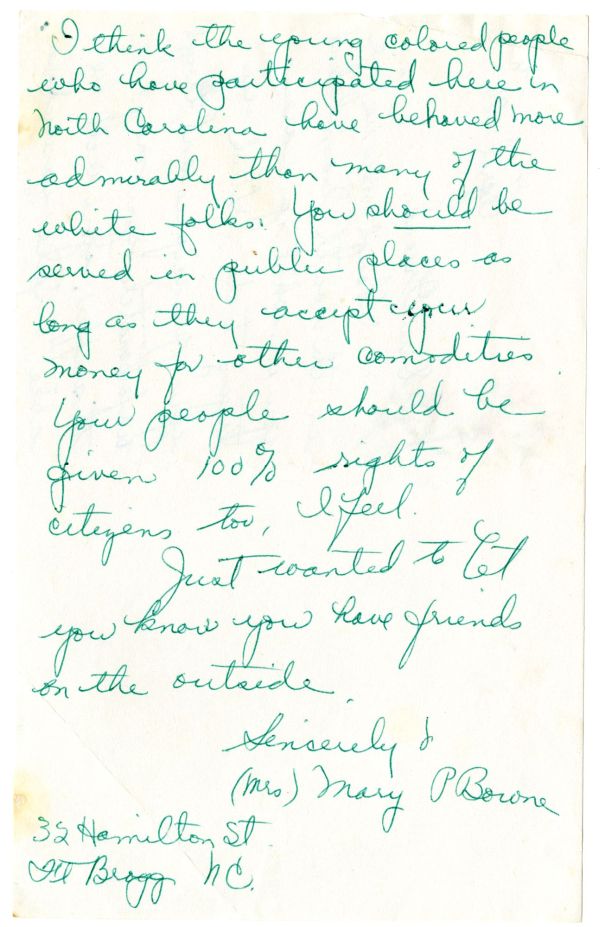 I think the young colored people
who have participated here in
North Carolina have behaved more
admirably than many of the
white folks. You should be
served in public places as
long as they accept your
money for other comodities.
Your people should be
given 100% rights of
citizens too, I feel.
Just wanted to let
you know you have friends
on the outside.
Sincerely
(Mrs) Mary P Bowne
32 Hamilton St.
Ft Bragg NC.